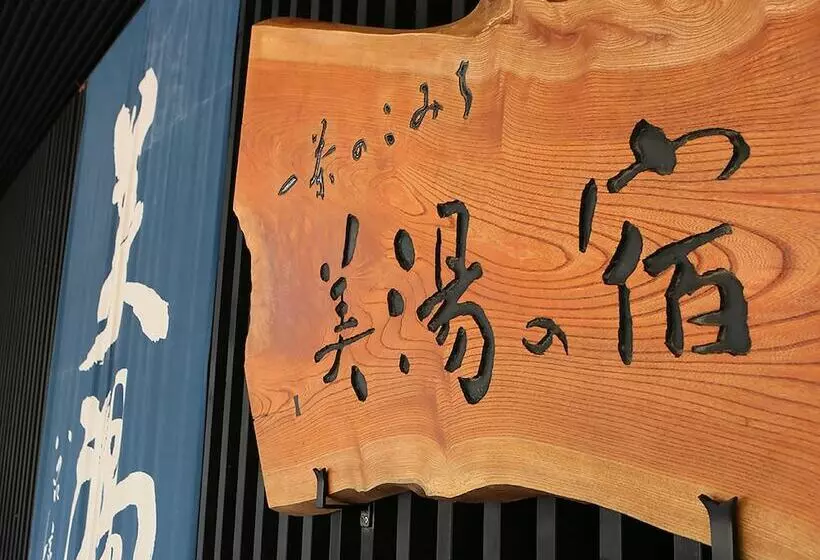 木のこみち
美湯の宿
美湯